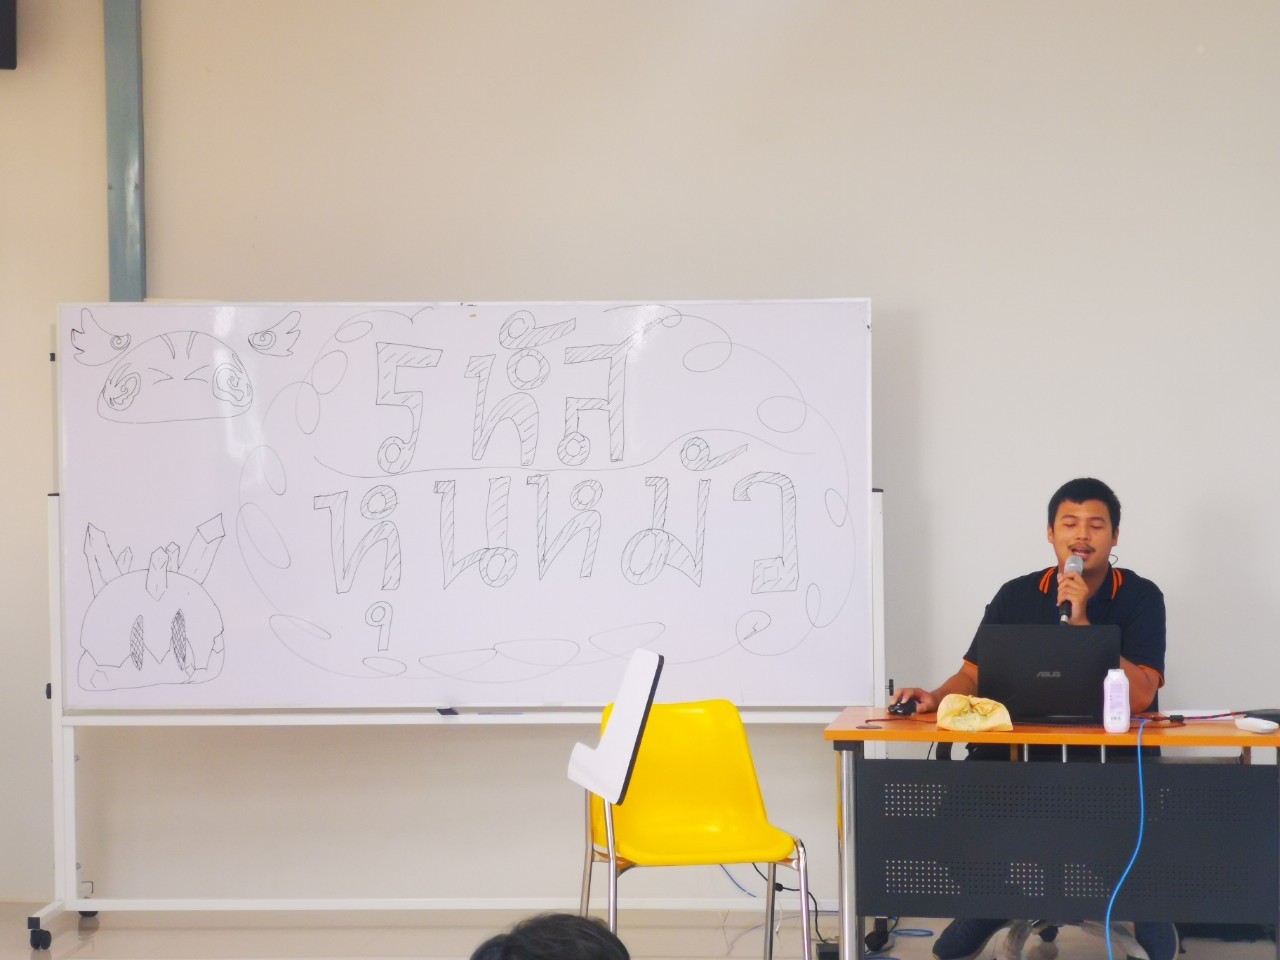 รหัส
หุ่นหมัว
ASUS